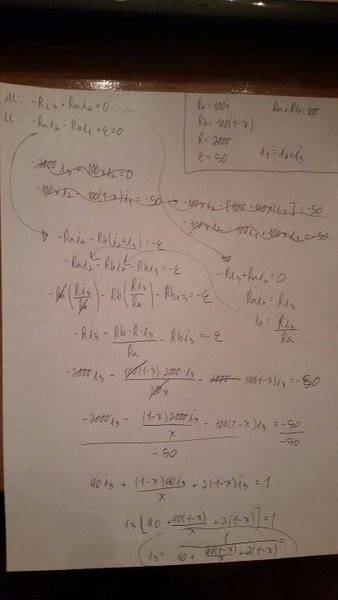 -Ri3 + Rai2 = 0
-Rai2 - Rbi1 + ε = 0
Ra = 100x
Ra + Rb = 100
Rb = 100(1-x)
R = 2000
ε = 50
i1 = i2 + i3
-2000i3 + 100xi2 = 0
-100xi2 - 100(1-x)i1 = -50
-100xi2 - [100 - 100x]i1 = -50
-100xi2 - 100i1 + 100xi1 = -50
-Rai2 - Rb(i2+i3) = -ε
-Rai2 - Rbi2 - Rbi3 = -ε
-Ri3 + Rai2 = 0
Rai2 = Ri3
i2 = Ri3/Ra
-Ra(Ri3/Ra) - Rb(Ri3/Ra) - Rbi3 = -ε
-Ri3 - Rb·R·i3/Ra - Rbi3 = -ε
-2000i3 - 100(1-x)2000i3/100x - 100(1-x)i3 = -50
-2000i3 - (1-x)2000i3/x - 100(1-x)i3 = -50
-50
-50
40i3 + (1-x)40i3/x + 2(1-x)i3 = 1
i3[40 + 40(1-x)/x + 2(1-x)] = 1
i3 = 1/40 + 40(1-x)/x + 2(1-x) =